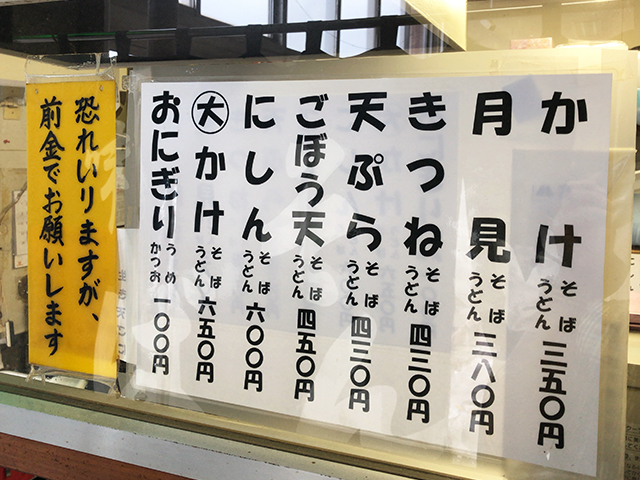 かけ そば うどん 三五〇円
月見 そば うどん 三八〇円
きつね そば うどん 四三〇円
天ぷら そば うどん 四三〇円
ごぼう天 そば うどん 四五〇円
にしん そば うどん 六〇〇円
大かけ そば うどん 六五〇円
おにぎり うめ かつお 一〇〇円
恐れいりますが、
前金でお願いします